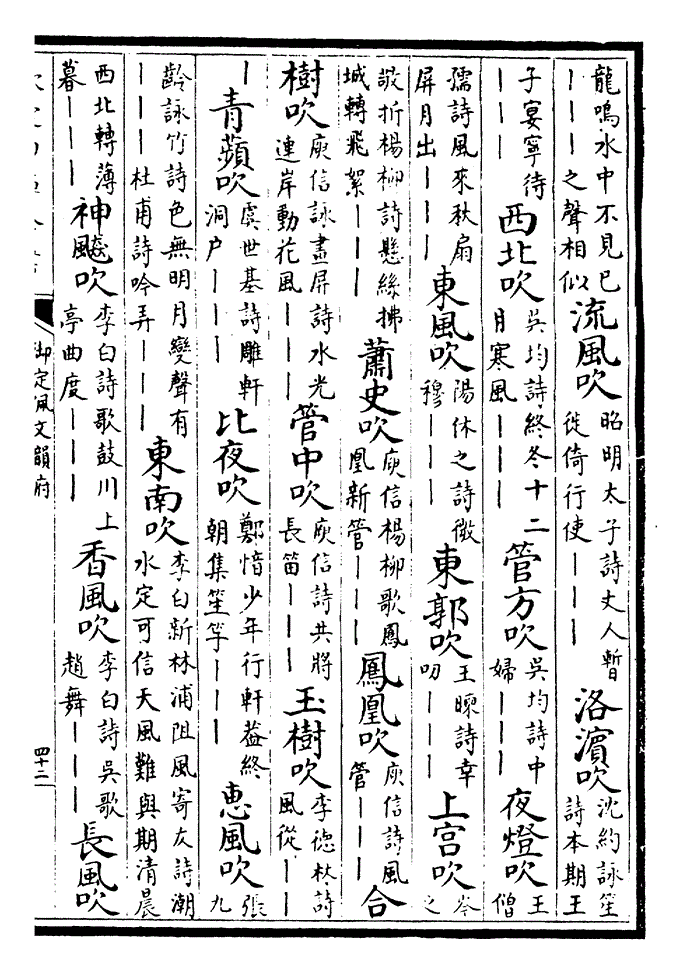 龍鳴水中不見已｜｜｜之聲相似流風吹昭明太子詩丈人暫徙倚行使｜｜｜洛濱吹沈約詠笙詩本期王
子宴寧待｜｜｜西北吹吳均詩終冬十二月寒風｜｜｜管方吹吳均詩中婦｜｜｜夜燈吹王僧
孺詩風來秋扇屏月出｜｜｜東風吹陽休之詩微穆｜｜｜東郭吹王暕詩幸叨｜｜｜上宮吹岑之
敬折楊柳詩懸絲拂城轉飛絮｜｜｜蕭史吹庾信楊柳歌鳳凰新管｜｜｜鳳凰吹庾信詩風管｜｜｜合
樹吹庾信詠畫屏詩水光連岸動花風｜｜管中吹庾信詩共將長笛｜｜｜玉樹吹李德林詩風從｜｜
｜青蘋吹虞世基詩雕軒洞戶｜｜｜比夜吹鄭愔少年行軒蓋終朝集笙竽｜｜｜惠風吹張九
齡詠竹詩色無明月變聲有｜｜｜杜甫詩吟弄｜｜｜東南吹李白新林浦阻風寄友詩潮水定可信天風難與期清晨
西北轉薄暮｜｜｜神飈吹李白詩歌鼓川上亭曲度｜｜｜香風吹李白詩吳歌趙舞｜｜｜長風吹
御定佩文韻府
四十二